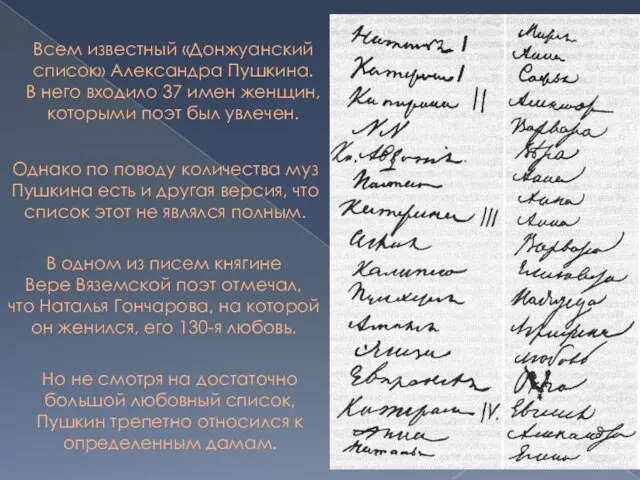 Всем известный «Донжуанский
список» Александра Пушкина.
В него входило 37 имен женщин,
которыми поэт был увлечен.
Однако по поводу количества муз
Пушкина есть и другая версия, что
список этот не являлся полным.
В одном из писем княгине
Вере Вяземской поэт отмечал,
что Наталья Гончарова, на которой
он женился, его 130-я любовь.
Но не смотря на достаточно
большой любовный список,
Пушкин трепетно относился к
определенным дамам.
Наталья I
Катерина I
Катерина II
NN
Кн. Авдотия
Настасья
Катерина III
Аглая
Калипсо
Пульхерия
Амалия
Элиза
Евпраксея
Катерина IV
Анна
Наталья
Мария
Анна
Софья
Александра
Варвара
Вера
Анна
Анна
Анна
Варвара
Елизавета
Надежда
Аграфена
Любовь
Ольга
Евгения
Александра
Елена